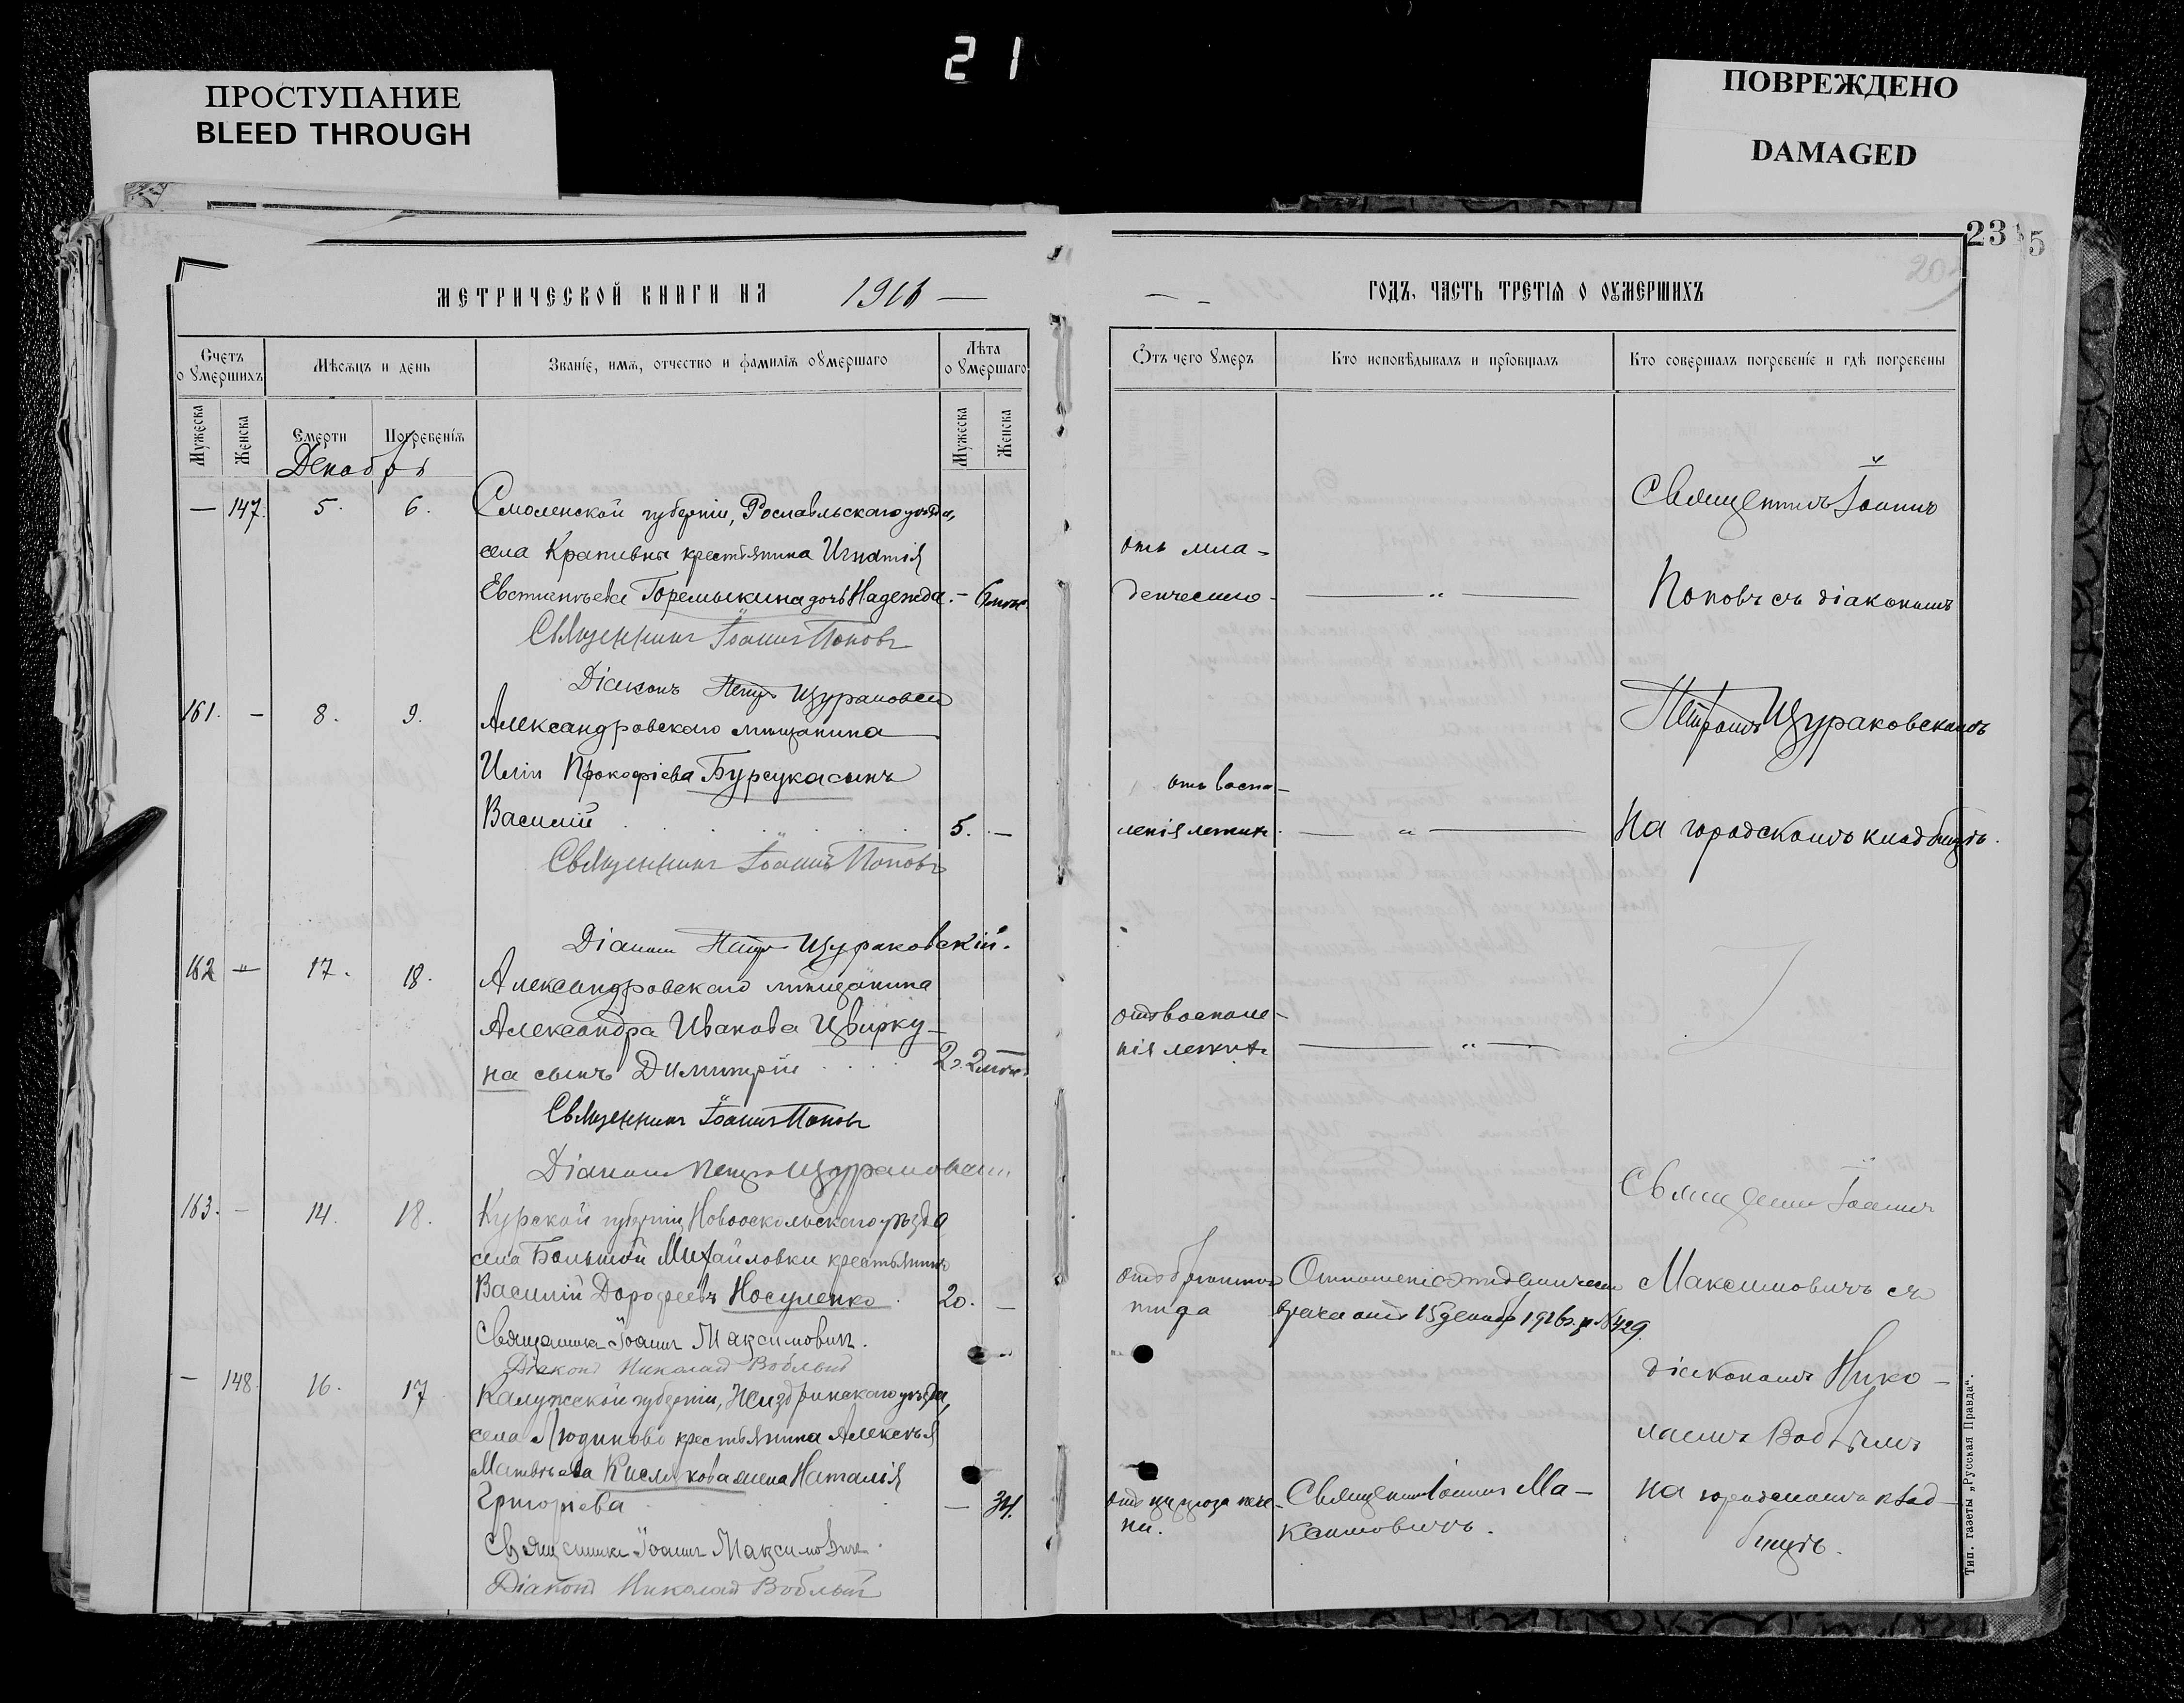 21
ПРОСТУПАНИЕ
BLEED THROUGH
ПОВРЕЖДЕНО
DAMAGED
МЕТРИЧЕСКОЙ КНИГИ НА 1916
Счетъ оумершихъ
Мѣсяцъ и день
Званіе, имя, отчество и фамилія оумершаго
Лѣта оумершаго
Мужеска
Женска
Смерти
Погребенія
Мужеска
Женска
Декабрь
— 147. 5. 6. Смоленской губерніи, Рославльскаго уѣзда,
села Крапивны крестьянина Игнатія
Евстигнѣева Горемыкина дочь Надежда. – 6 мѣс.
Священникъ Іоаннъ Поповъ
Діаконъ Петръ Щураковскій
161. – 8. 9. Александровскаго мѣщанина
Иліи Прокофіева Бурсука сынъ
Василій 5. —
Священникъ Іоаннъ Поповъ
Діаконъ Петръ Щураковскій.
162 – 17. 18. Александровскаго мѣщанина
Александра Иванова Цвирку-
на сынъ Димитрій 2 г. 2 мѣс.
Священникъ Іоаннъ Поповъ
Діаконъ Петръ Щураковскій
163. – 14. 18. Курской губерніи Новооскольскаго уѣзда
села Большой Михайловки крестьянинъ
Василій Дорофеевъ Носуленко. 20. —
Священникъ Іоаннъ Максимовичъ.
Діаконъ Николай Воблый
– 148. 16. 17 Калужской губерніи, Жиздринскаго уѣзда,
села Людиново крестьянина Алексѣя
Матвѣева Кислякова жена Наталія
Григоріева — 34.
Священникъ Іоаннъ Максимовичъ.
Діаконъ Николай Воблый
23 5
ГОДЪ, ЧАСТЬ ТРЕТІЯ О ОУМЕРШИХЪ
Отъ чего умеръ
Кто исповѣдывалъ и пріобщалъ
Кто совершалъ погребеніе и гдѣ погребены
Священникъ Іоаннъ
отъ мла-
денческаго — „ —
Поповъ съ діакономъ
Петромъ Щураковскимъ
отъ воспа-
ленія легкихъ. — „ —
На городскомъ кладбищѣ.
отъ воспале-
нія легкихъ — „ —
Священникъ Іоаннъ
отъ брюшного
тифа
врача отъ 15 декабр 1916 г. за № 429
Максимовичъ съ
діакономъ Нико-
лаемъ Воблымъ
отъ цирроза пече-
ни.
Священникъ Іоаннъ Ма-
ксимовичъ.
на городскомъ клад-
бищѣ.
Тип. газеты „Русская Правда".